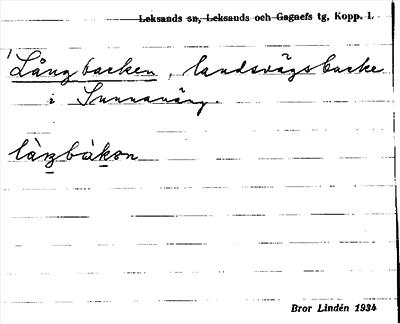 Leksands sn, Leksands och Gagnefs tg, Kopp. l.
Långbacken, landsvägsbacke
i Sunnanäng.
làŋbàkən
Bror Lindén 1934